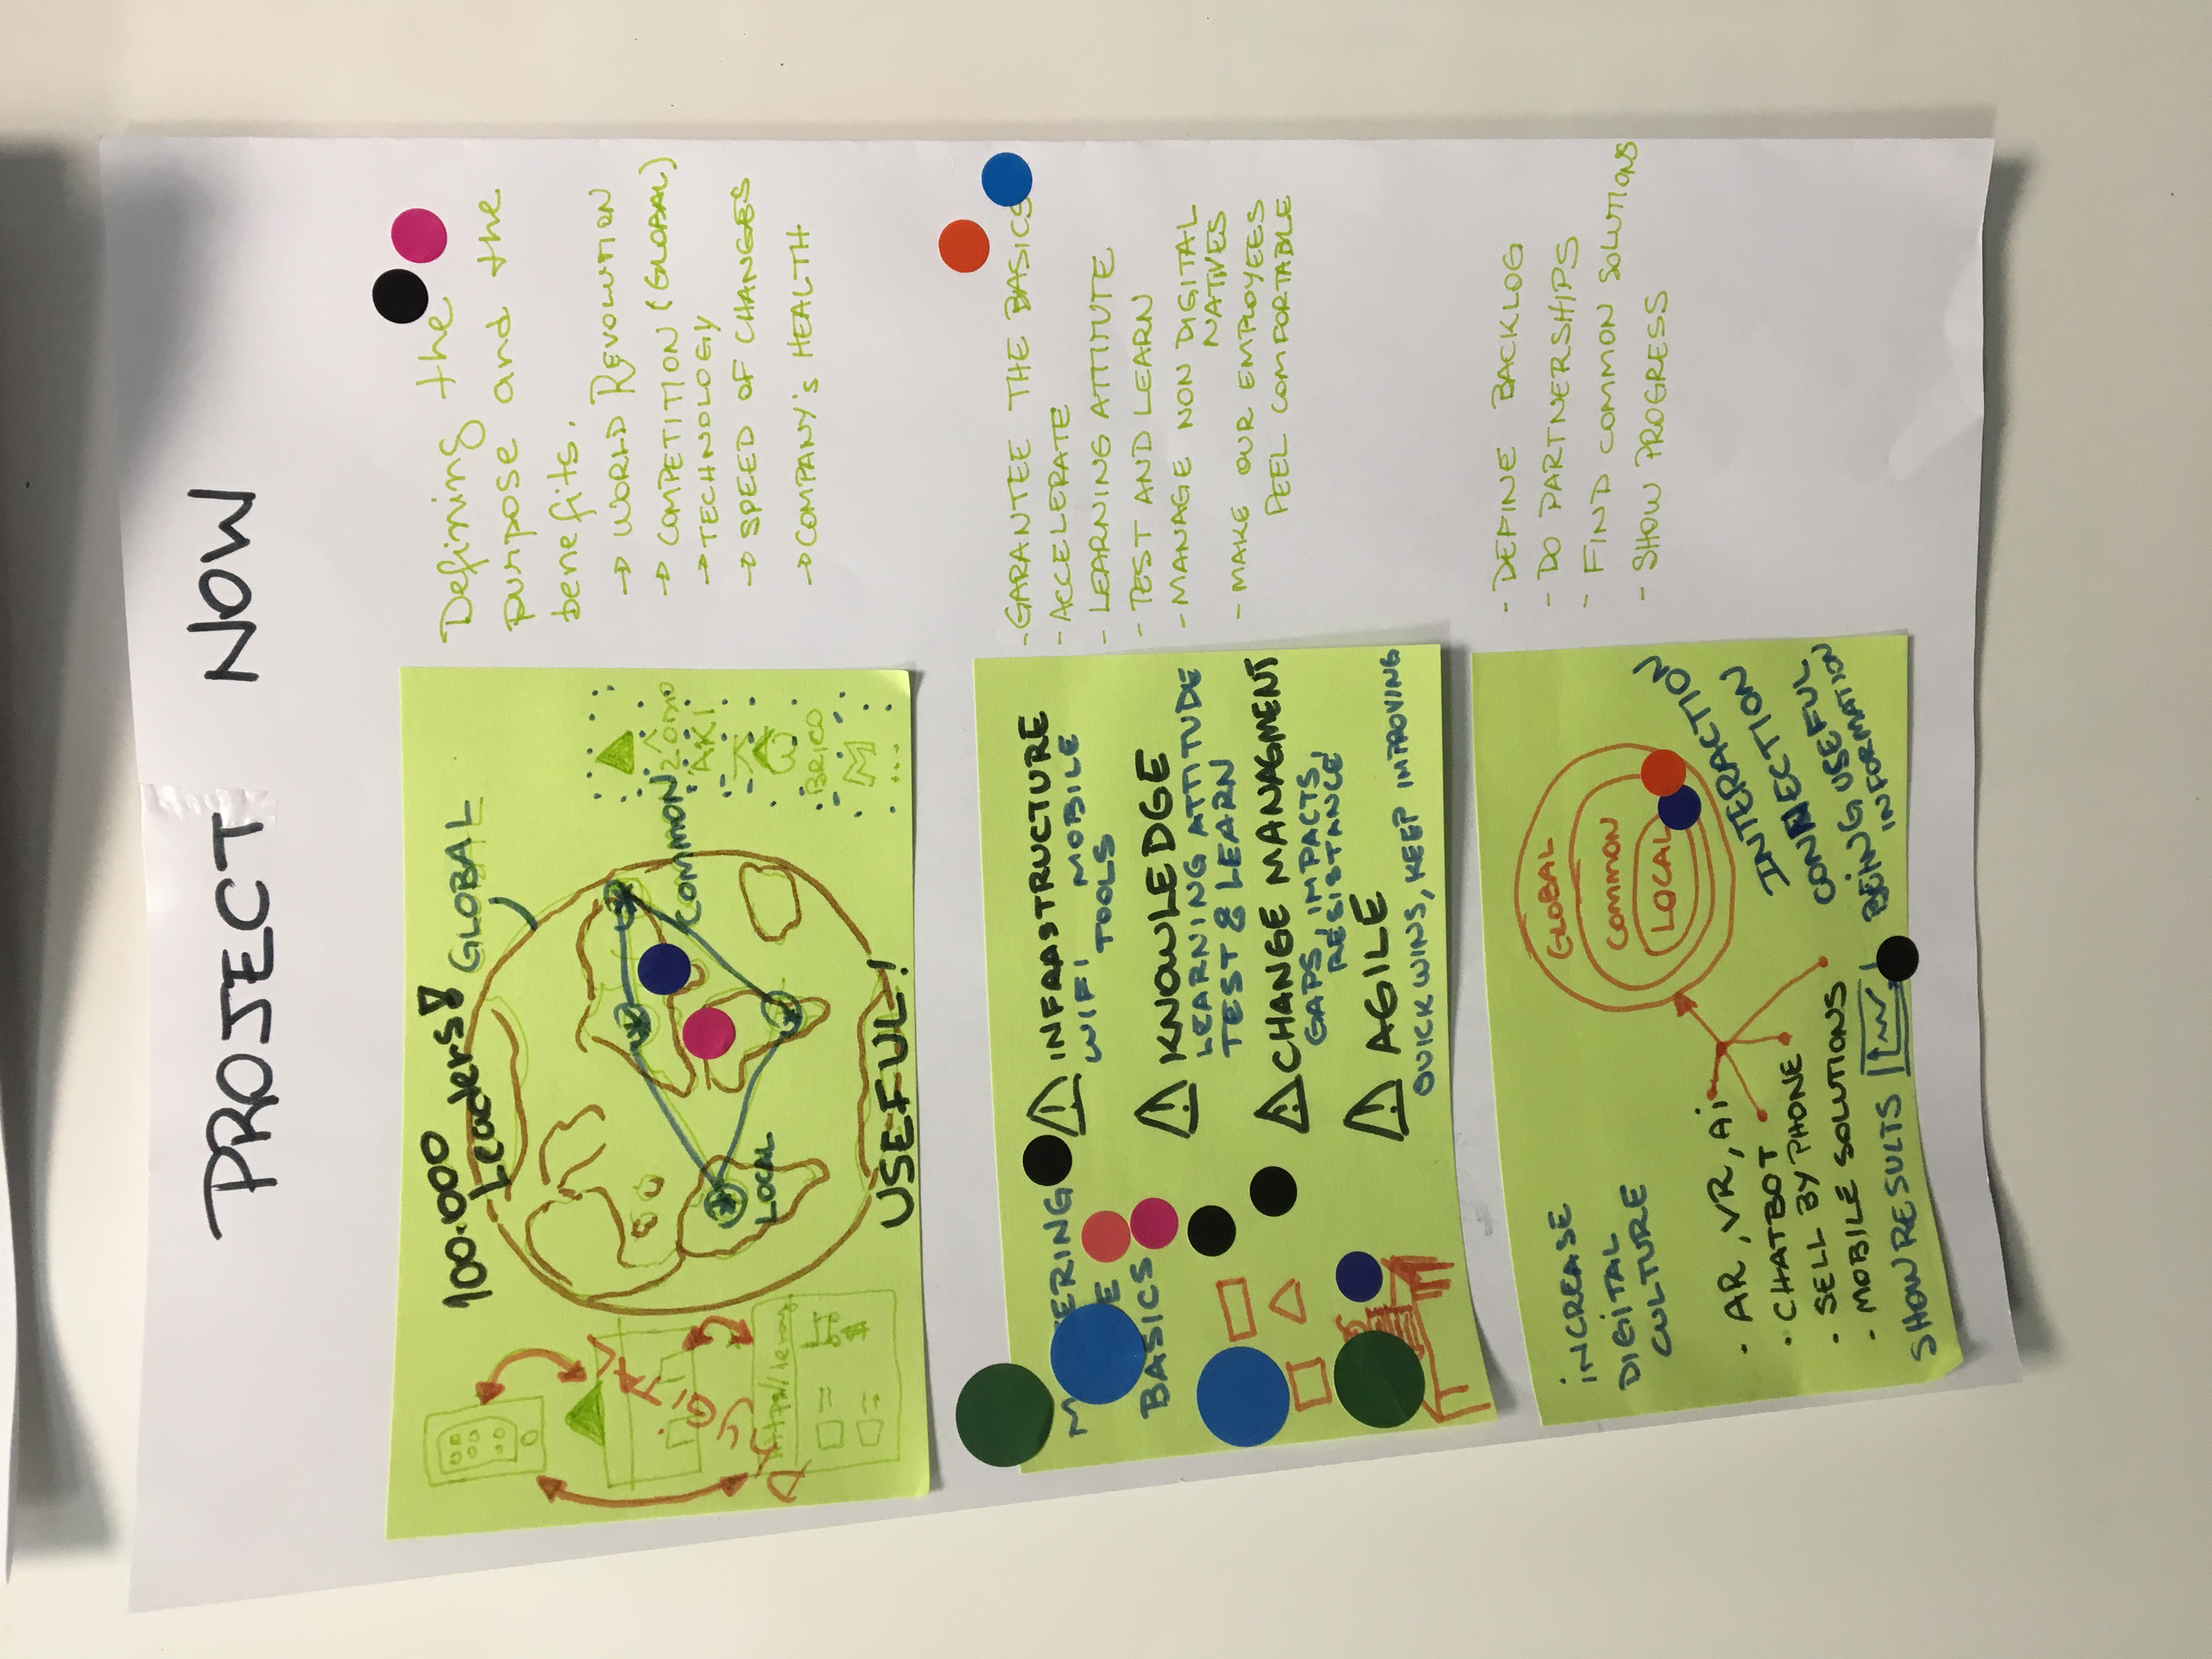 PROJECT NOW
100.000
Leaders!
GLOBAL
PHYGiTAL
COMMON
LOCAL
AKI
BRICO
M
...
USEFUL!
Defining the
purpose and the
benefits.
→ WORLD REVOLUTION
→ COMPETITION (GLOBAL)
→ TECHNOLOGY
→ SPEED OF CHANGES
→ COMPANY'S HEALTH
BASICS
INFRASTRUCTURE
WIFI MOBILE
TOOLS
KNOWLEDGE
LEARNING ATTITUDE
TEST & LEARN
CHANGE MANAGMENT
GAPS, IMPACTS,
RESISTANCE
AGILE
QUICK WINS, KEEP IMPROVING
- GARANTEE THE BASICS
- ACCELERATE
- LEARNING ATTITUTE
- TEST AND LEARN
- MANAGE NON DIGITAL
NATIVES
- MAKE OUR EMPLOYEES
FEEL COMFORTABLE
iNCREASE
DIGITAL
CULTURE
GLOBAL
COMMON
LOCAL
· AR, VR, Ai
· CHATBOT
· SELL BY PHONE
· MOBILE SOLUTIONS
SHOW RESULTS
INTERACTION
CONNECTION
BEiNG USEFUL
INFORMATION
- DEFINE BACKLOG
- DO PARTNERSHIPS
- FIND COMMON SOLUTIONS
- SHOW PROGRESS